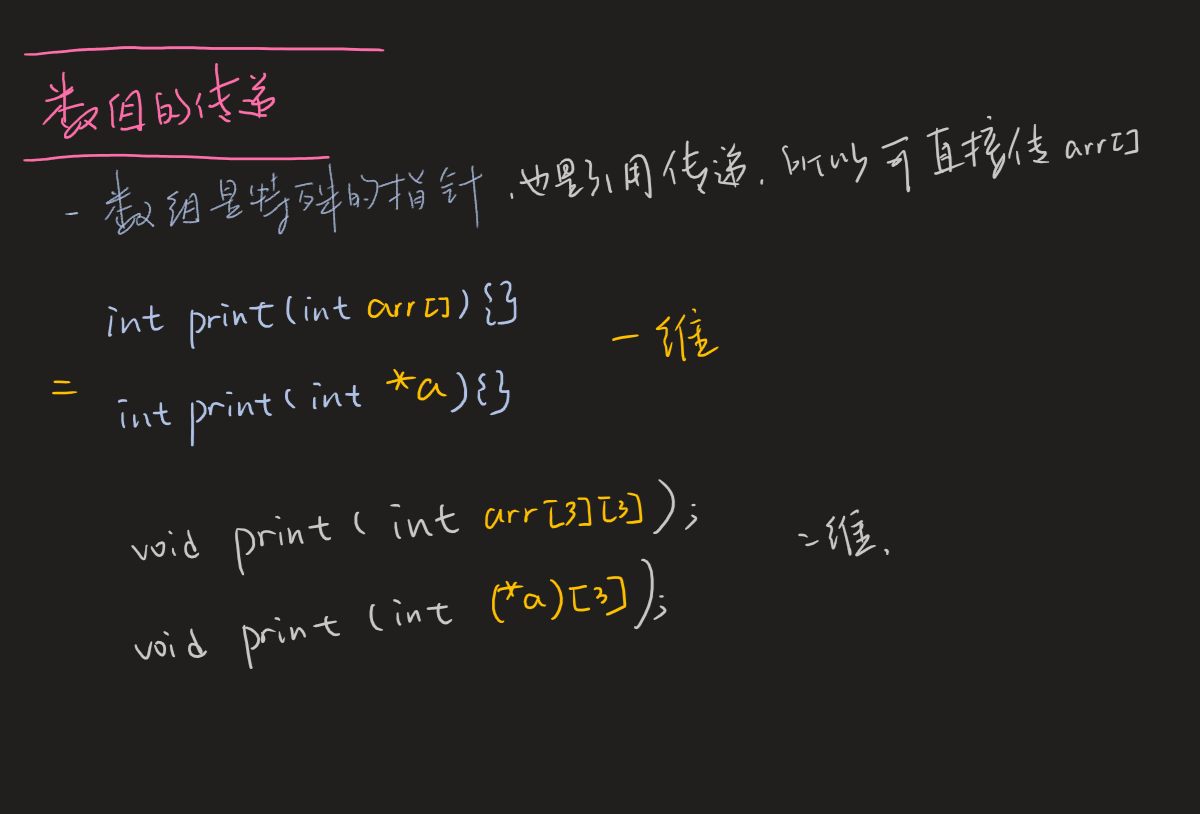 数组的传递
- 数组是特殊的指针,也是引用传递.所以可直接传 arr[]
int print(int arr[]){}
一维
=
int print(int *a){}
void print(int arr[3][3]);
二维.
void print(int (*a)[3]);